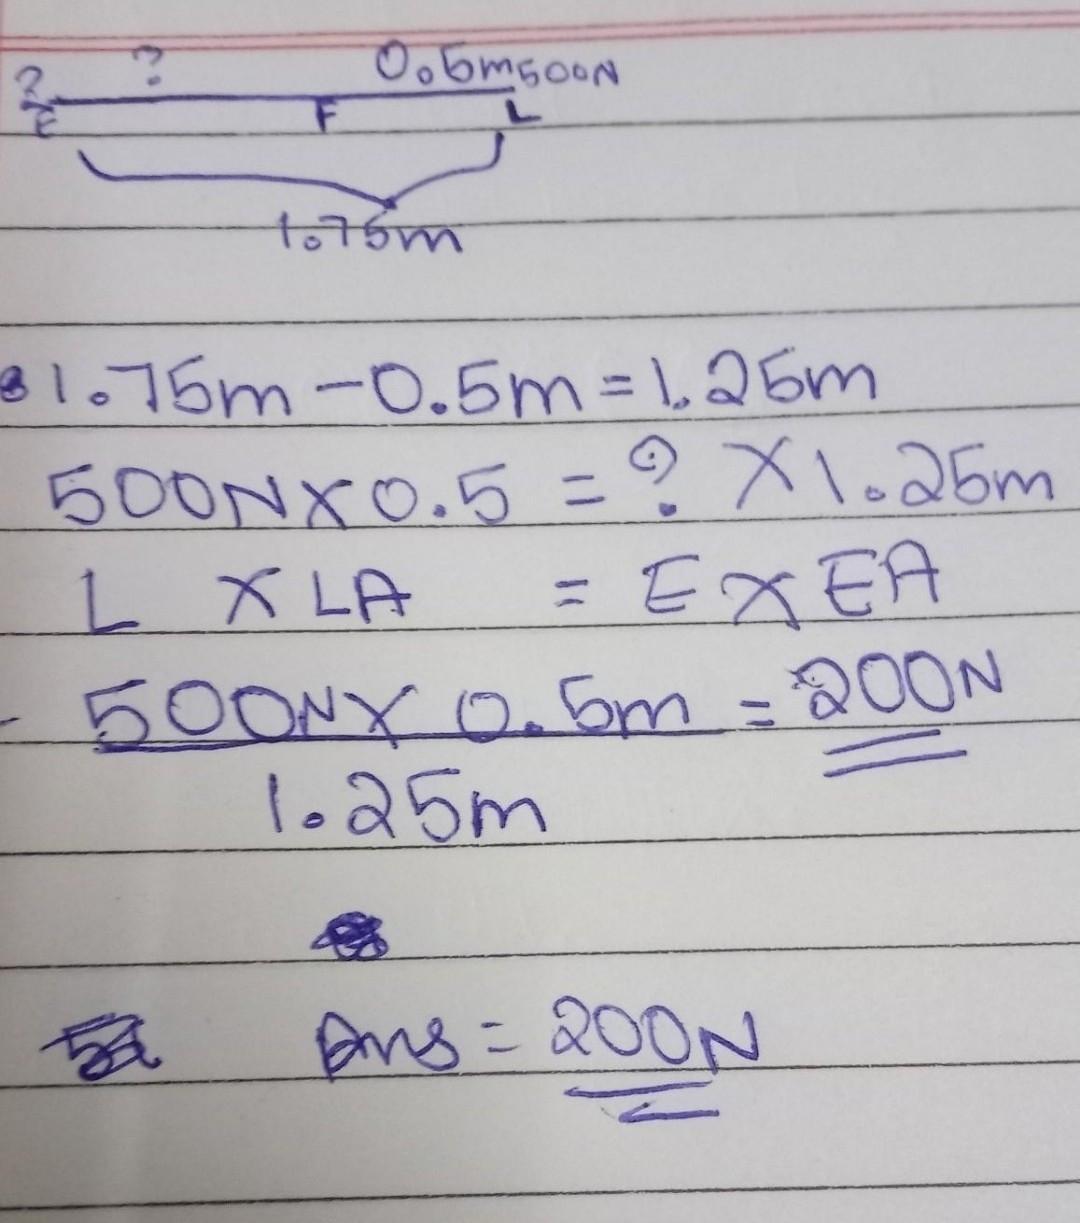 ? ? 0.5m 500N
E F L
1.75m
1.75m - 0.5m = 1.25m
500N X 0.5 = ? X 1.25m
L X LA = E X EA
500N X 0.5m = 200N
1.25m
Ans = 200N